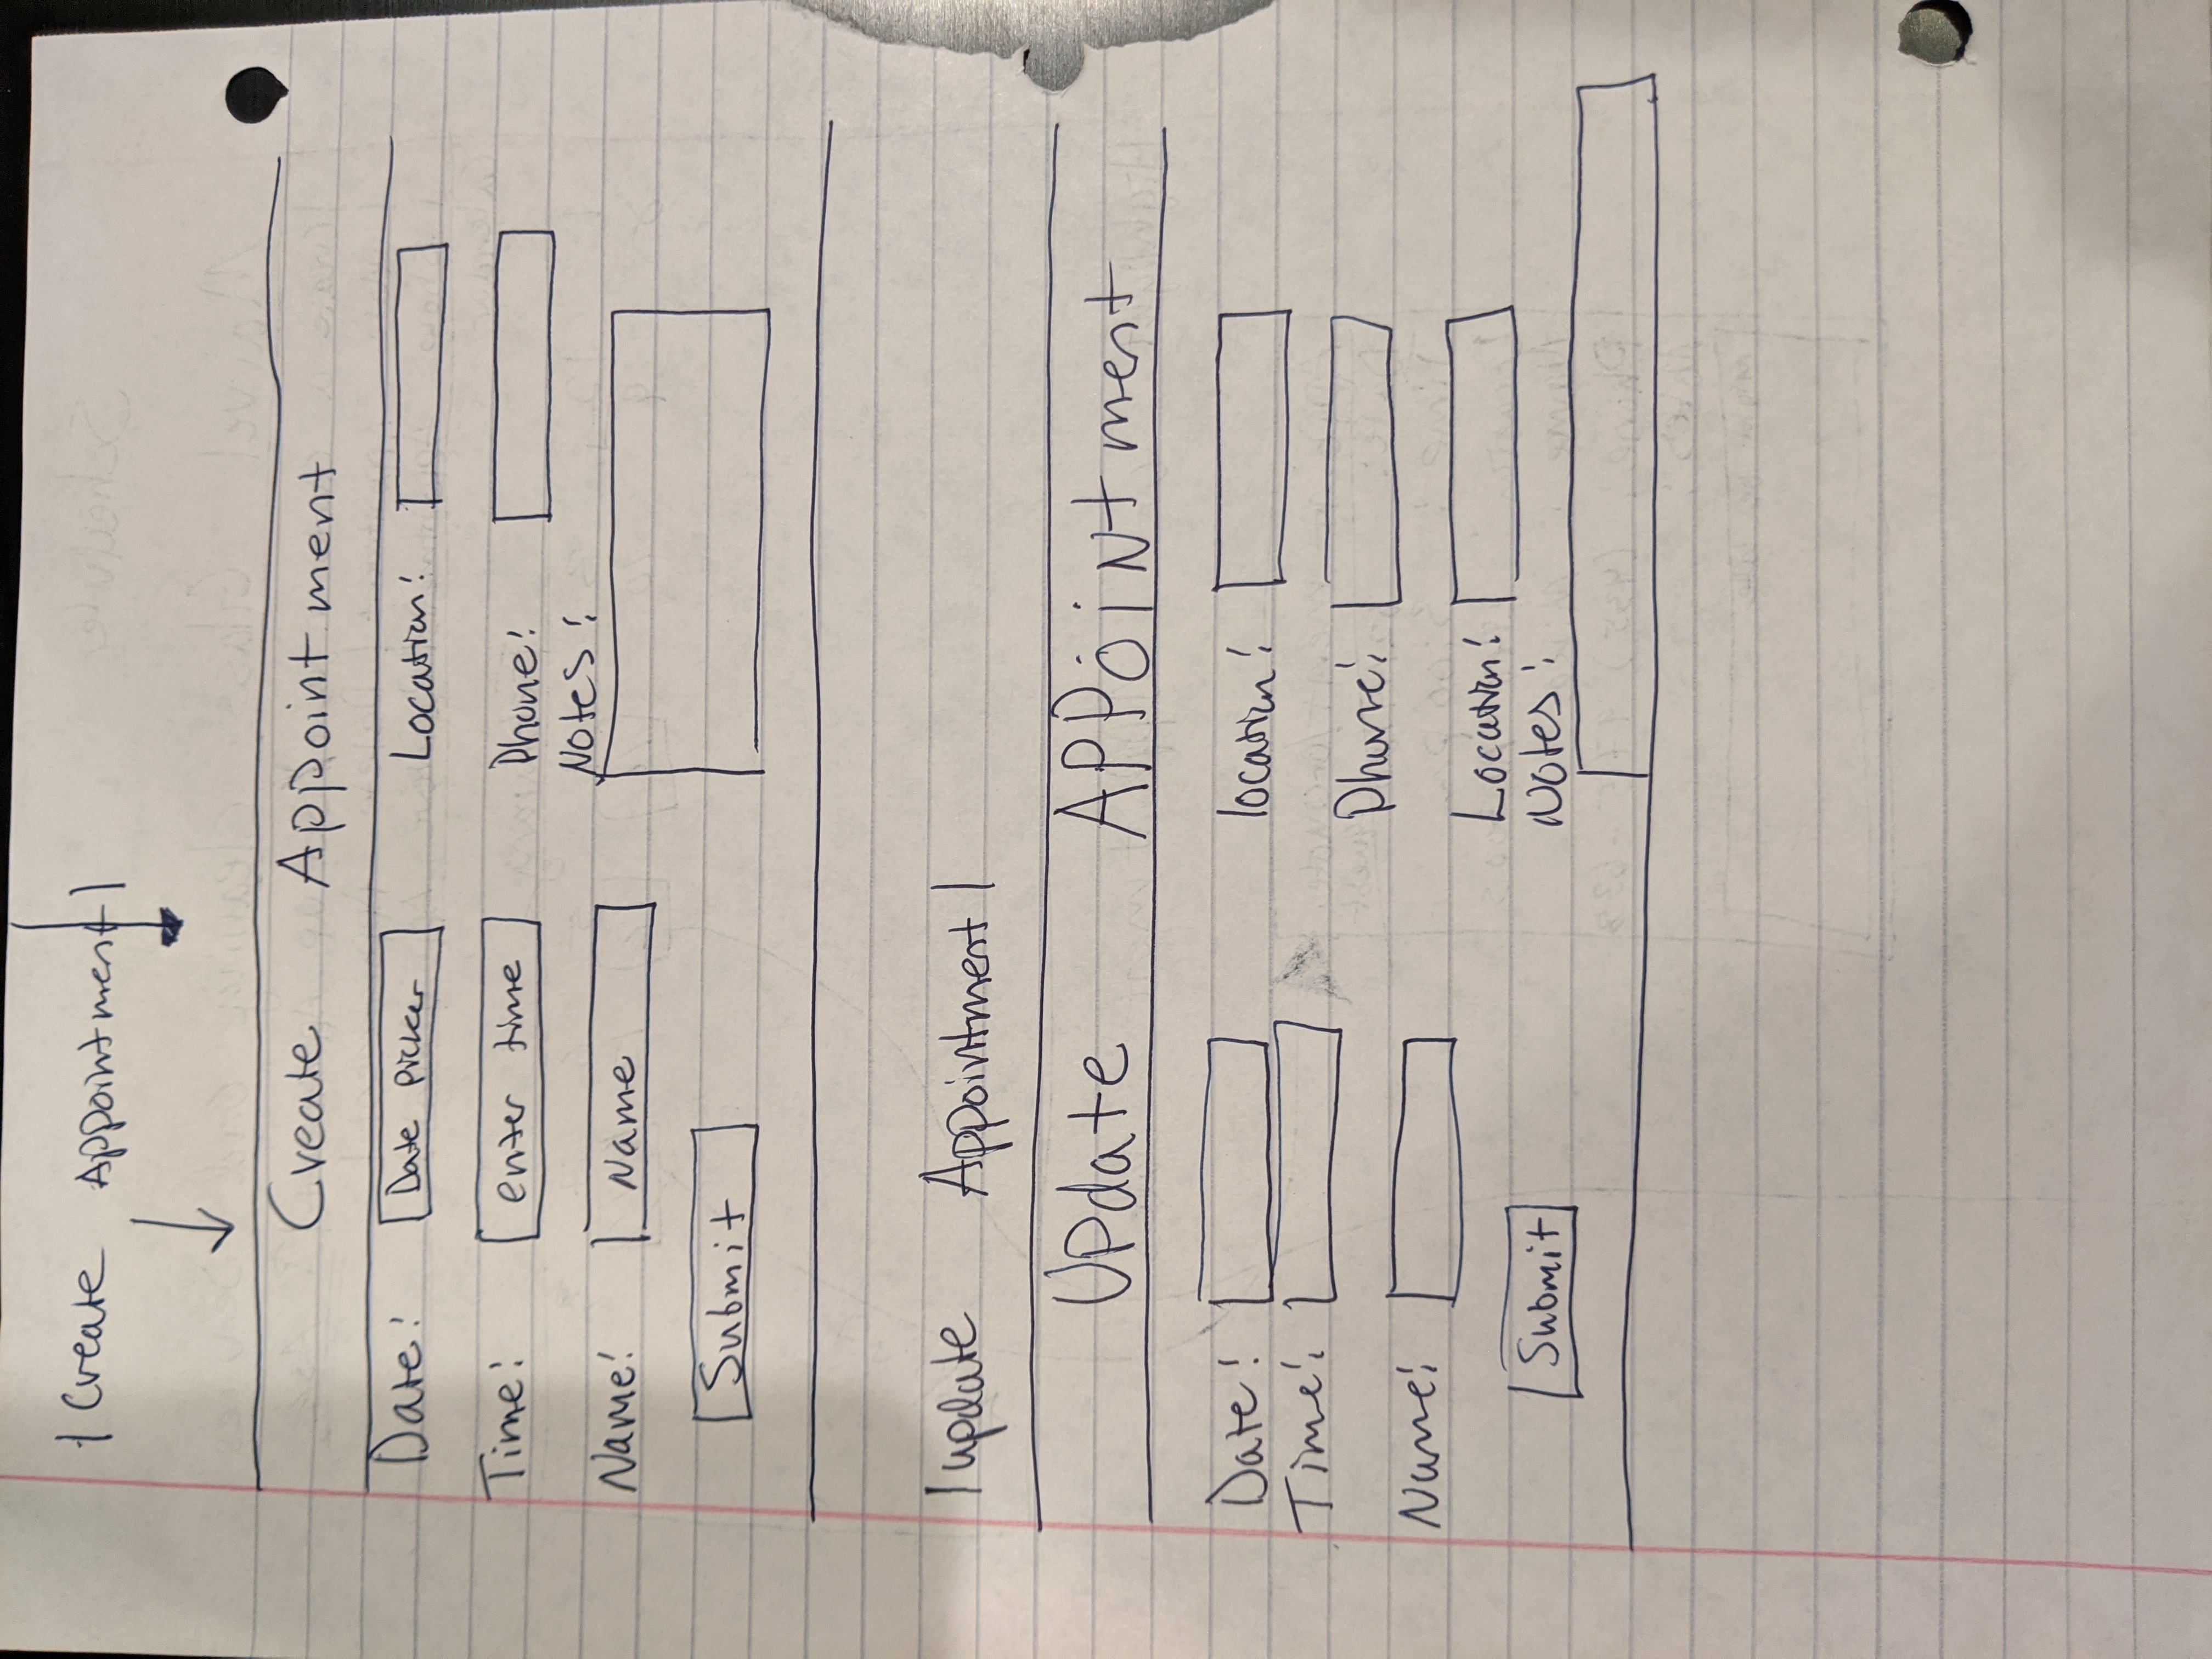 | Create Appointment |
Create Appointment
Date: Date picker Location:
Time: enter time Phone:
Notes:
Name: Name
Submit
| update Appointment |
Update APPointment
Date: location:
Time:
Phone:
Name:
Location:
Submit Notes: